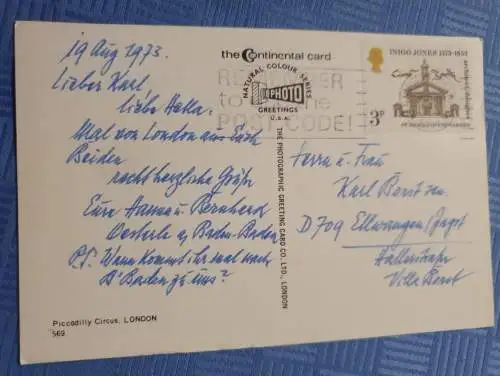 19 Aug 1973.
Lieber Karl
liebe Hella!
Mal von London aus Euch
Beiden
recht herzliche Grüße
Eure Hanna u. Bernhard
Oesterle a, Baden-Baden
P.S. Wann kommt ihr mal nach
B' Baden zu uns?
Piccadilly Circus, LONDON
569
the Continental card
NATURAL COLOUR SERIES
PHOTO
GREETINGS
U.S.A.
THE PHOTOGRAPHIC GREETING CARD CO., LTD., LONDON
REMEMBER
to the
POSTCODE!
INIGO JONES 1573-1652
3P
Herrn u. Frau
Karl
D 709 Ellwangen/Jagst
Villa